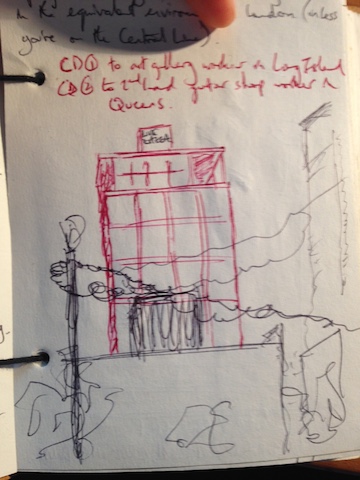 In the equivalent environ London (unless
you're on the Central Line).
CD① to art gallery worker in Long Island
CD② to 2nd hand guitar shop worker in
Queens.